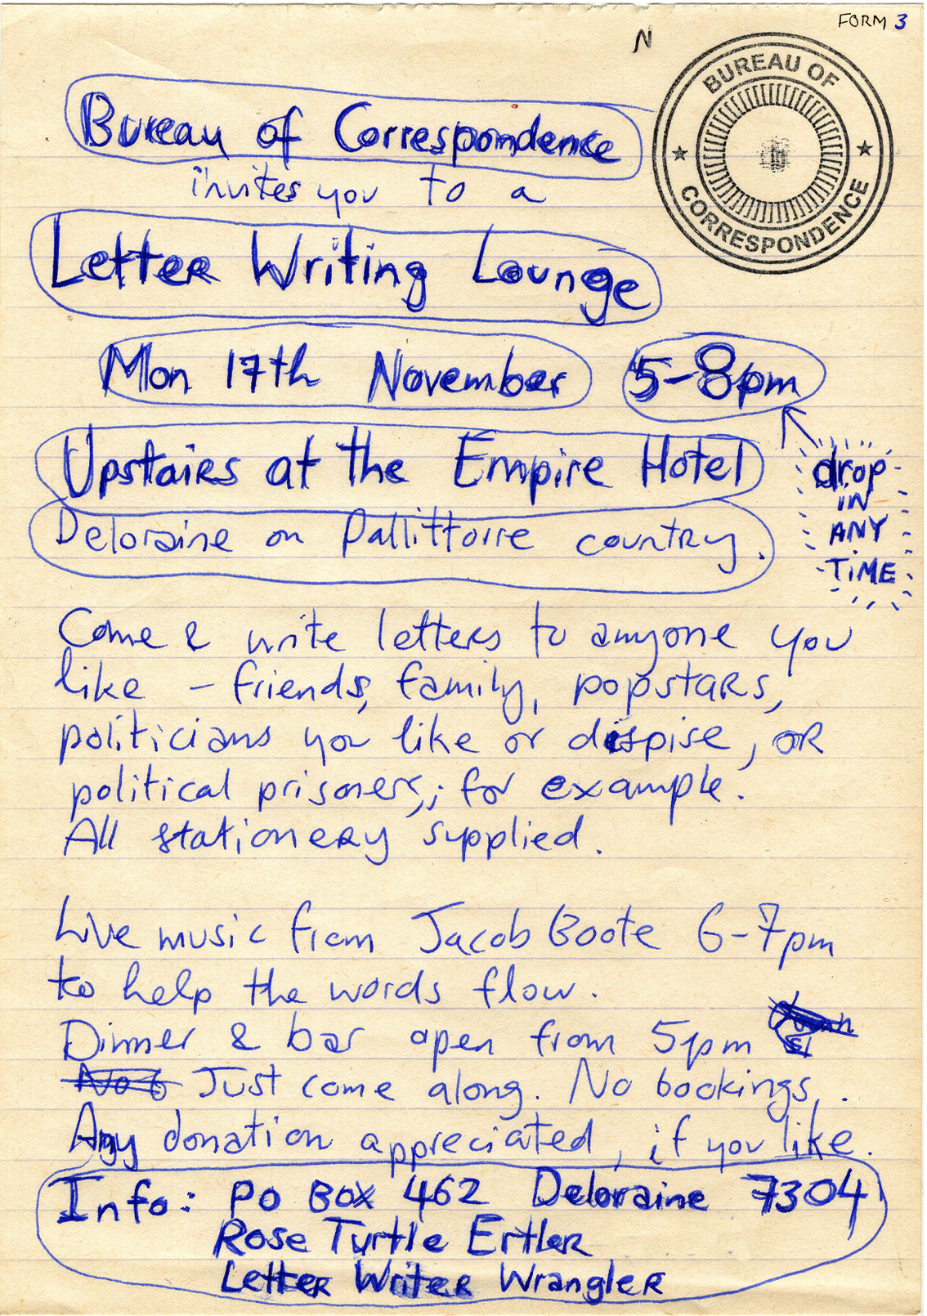 FORM 3
N
BUREAU OF
CORRESPONDENCE
Bureau of Correspondence
invites you to a
Letter Writing Lounge
Mon 17th November 5-8pm
drop
IN
ANY
TIME
Upstairs at the Empire Hotel
Deloraine on Pallittorre country.
Come & write letters to anyone you
like - friends, family, popstars,
politicians you like or dispise, or
political prisoners, for example.
All stationery supplied.
Live music from Jacob Boote 6-7pm
to help the words flow.
Dinner & bar open from 5pm
Just come along. No bookings.
Any donation appreciated, if you like.
Info: PO BOX 462 Deloraine 7304
Rose Turtle Ertler
Letter Writer Wrangler